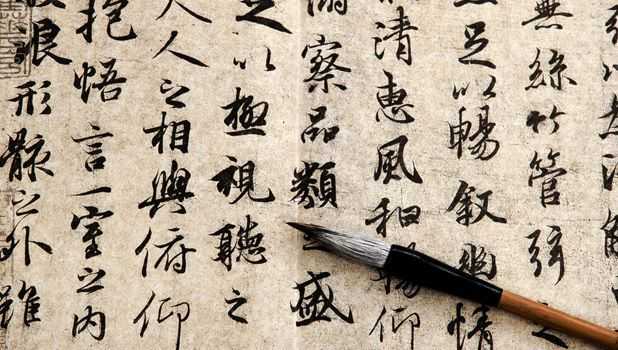 無絲竹管弦之
足以暢叙幽情
清惠風和暢仰
察品類之盛
足以極視聽之
人之相與俯仰
抱悟言一室之内
浪形骸之外雖